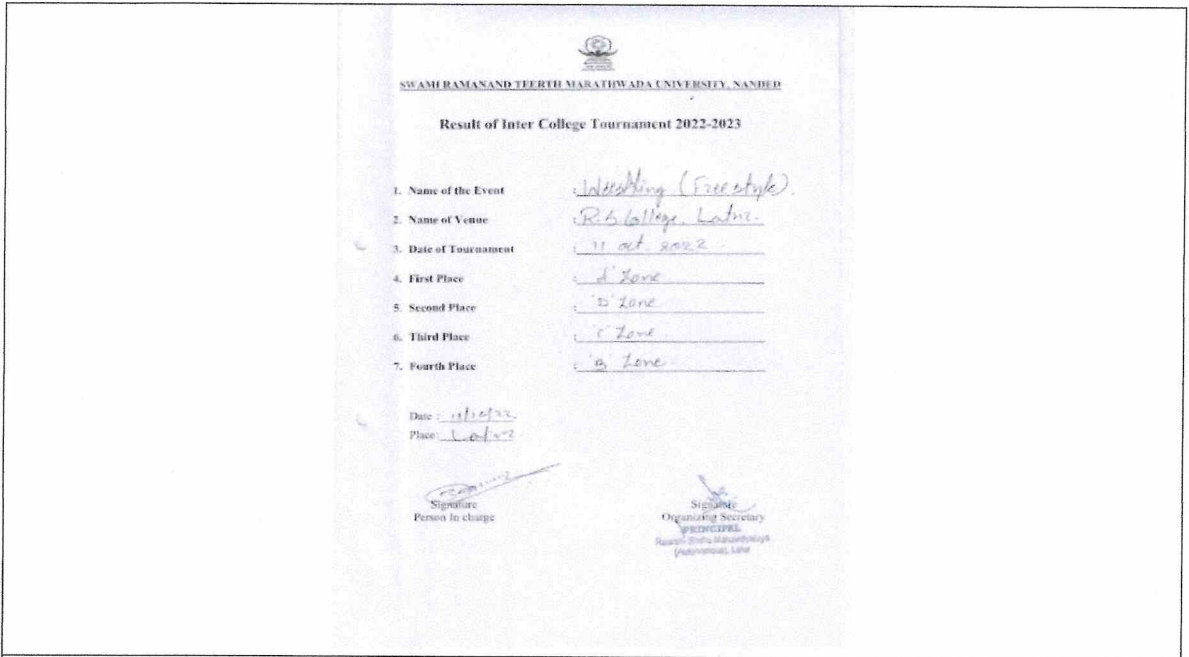 SWAMI RAMANAND TEERTH MARATHWADA UNIVERSITY, NANDED
Result of Inter College Tournament 2022-2023
1. Name of the Event : Wrestling (Freestyle).
2. Name of Venue : R.S. College, Latur.
3. Date of Tournament : 11 oct. 2022
4. First Place : 'A' Zone
5. Second Place : 'D' Zone
6. Third Place : 'C' Zone
7. Fourth Place : 'B' Zone
Date : 11/10/22
Place: Latur
Signature
Person In charge
Signature
Organizing Secretary
PRINCIPAL
Rajarshi Shahu Mahavidyalaya
(Autonomous), Latur